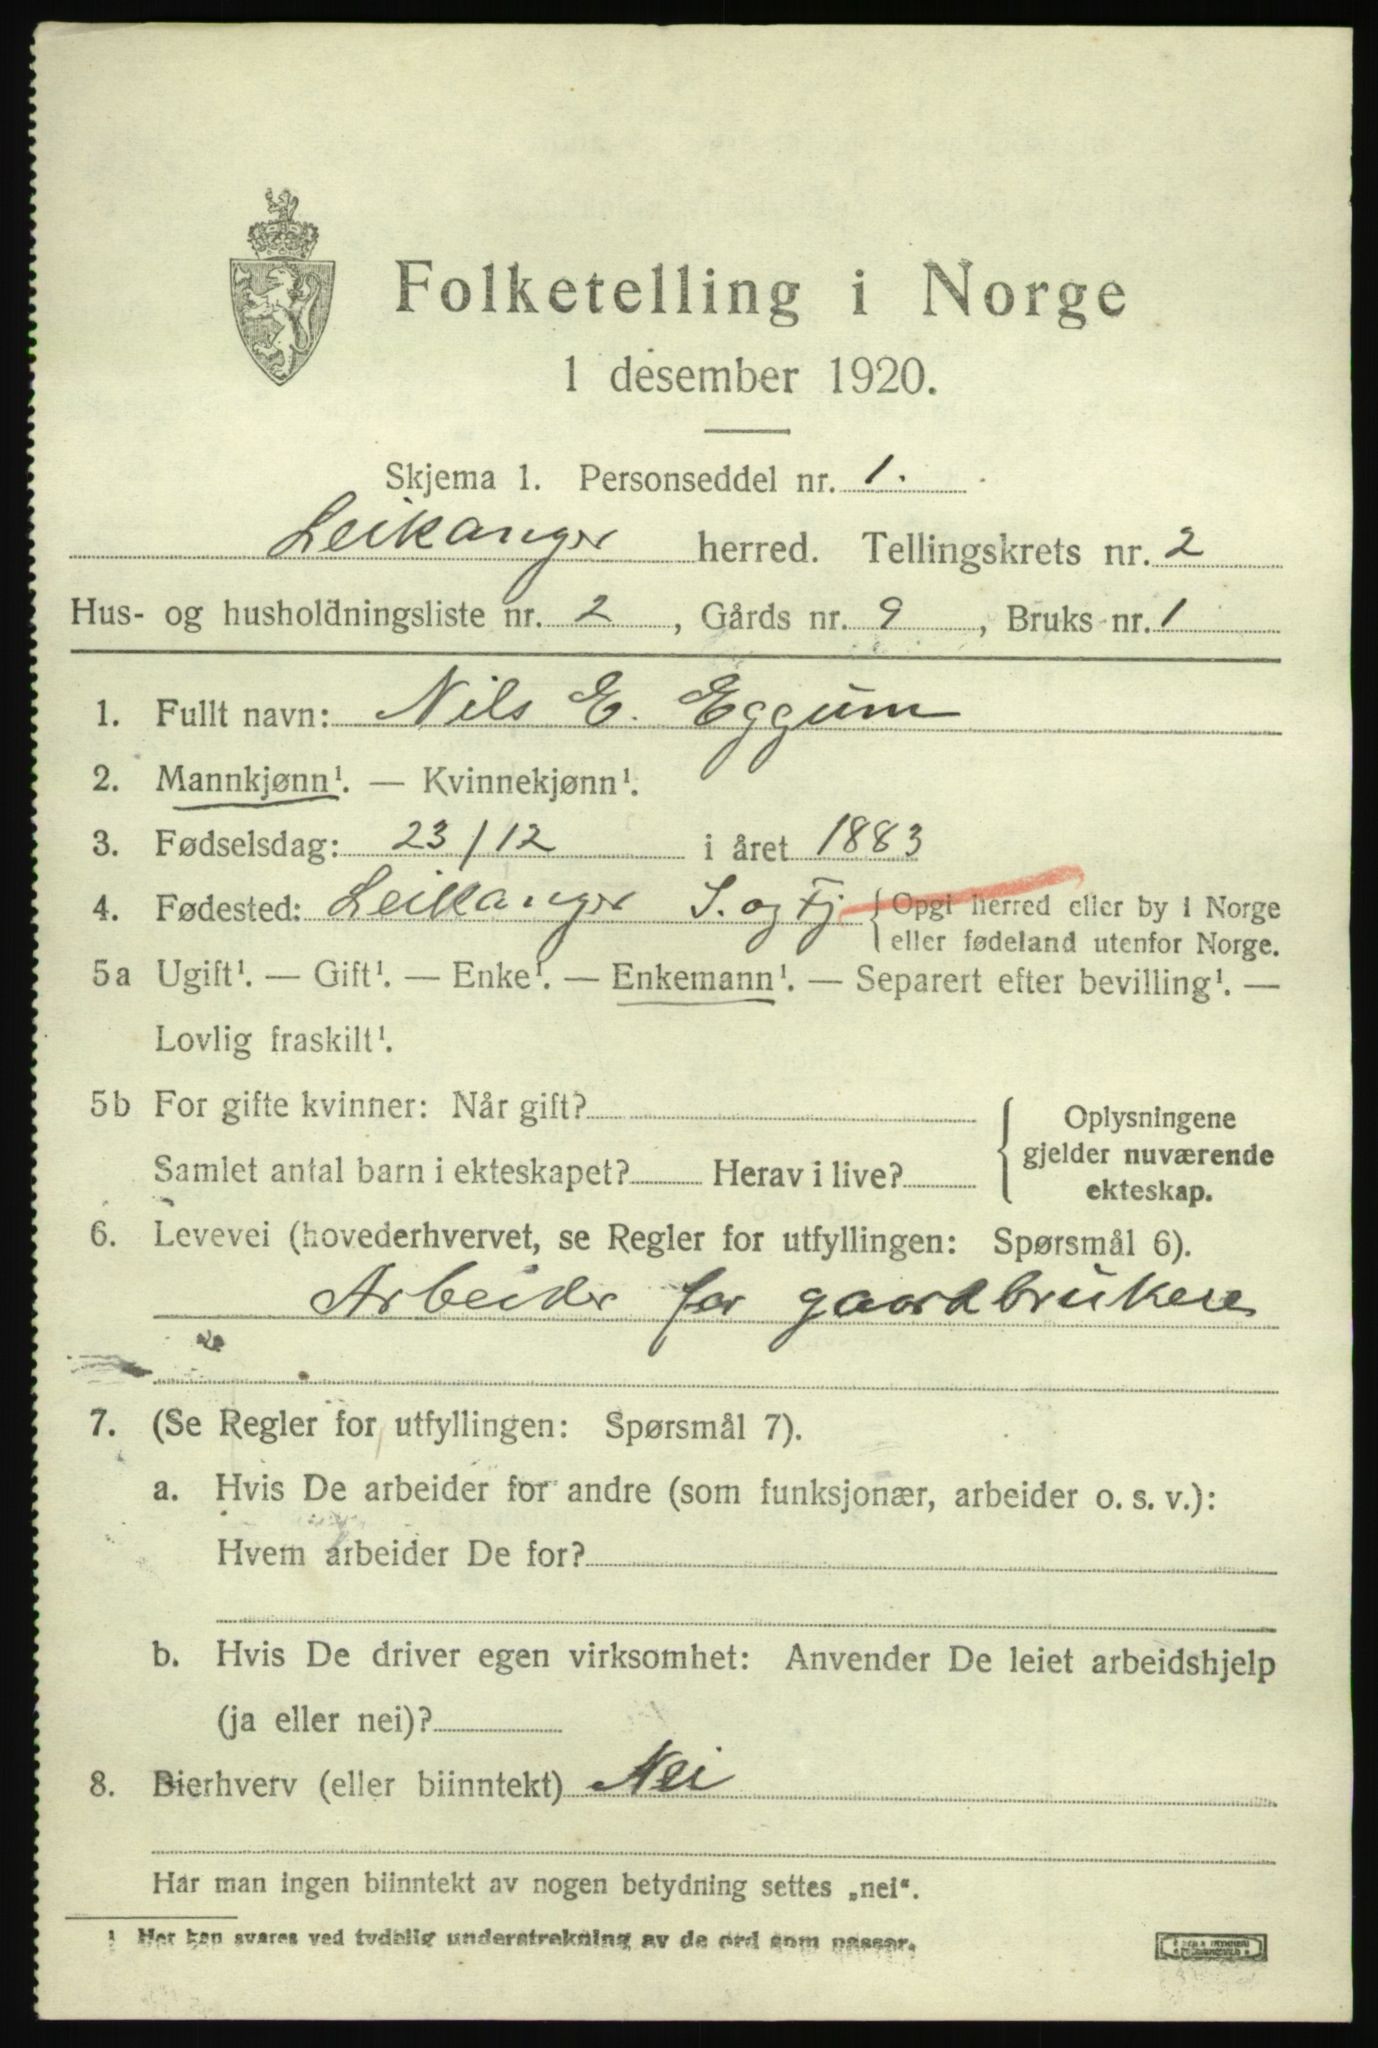 Folketelling i Norge
1 desember 1920.
Skjema 1. Personseddel nr. 1.
Leikanger herred. Tellingskrets nr. 2
Hus- og husholdningsliste nr. 2, Gårds nr. 9, Bruks nr. 1
1. Fullt navn: Nils E. Eggum
2. Mannkjønn¹. — Kvinnekjønn¹.
3. Fødselsdag: 23/12 i året 1883
4. Fødested: Leikanger S. og Fj { Opgi herred eller by i Norge
eller fødeland utenfor Norge.
5a Ugift¹. — Gift¹. — Enke¹. — Enkemann¹. — Separert efter bevilling¹. —
Lovlig fraskilt¹.
5b For gifte kvinner: Når gift?
Samlet antal barn i ekteskapet? Herav i live?
{ Oplysningene
gjelder nuværende
ekteskap.
6. Levevei (hovederhvervet, se Regler for utfyllingen: Spørsmål 6).
Arbeider for gaardbrukere
7. (Se Regler for utfyllingen: Spørsmål 7).
a. Hvis De arbeider for andre (som funksjonær, arbeider o. s. v.):
Hvem arbeider De for?
b. Hvis De driver egen virksomhet: Anvender De leiet arbeidshjelp
(ja eller nei)?
8. Bierhverv (eller biinntekt) Nei
Har man ingen biinntekt av nogen betydning settes „nei“.
¹ Her kan svares ved tydelig understrekning av de ord som passer.